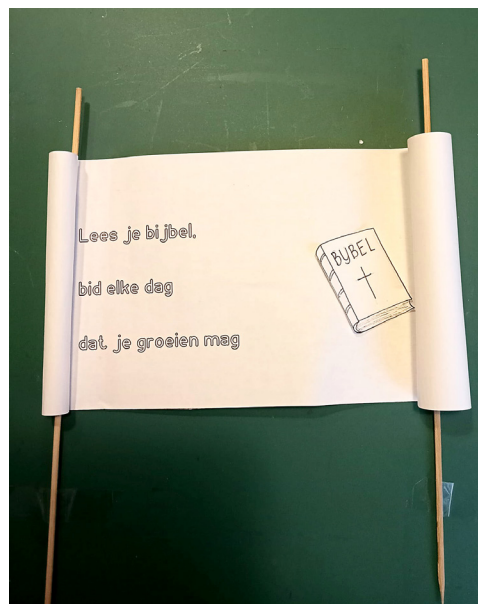 Lees je bijbel,
bid elke dag
dat je groeien mag
BYBEL